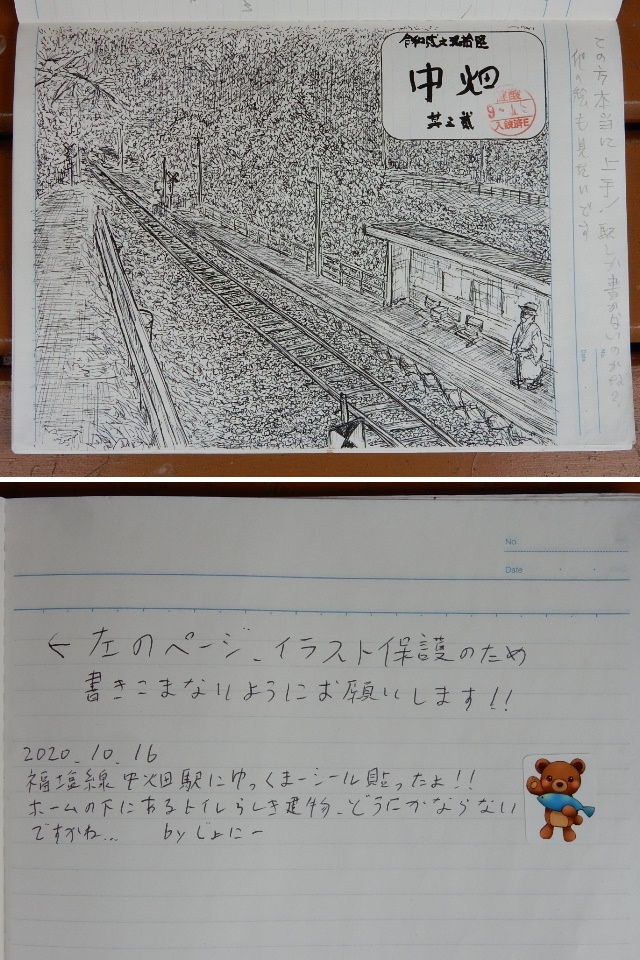 中畑
其之貳
この方本当に上手い 駅しか書かないのかな?
他の絵も見たいです
No.
Date
No.
Date
← 左のページ、イラスト保護のため
書きこまないようにお願いします!!
2020.10.16
福塩線 中畑駅にゆっくまーシール貼ったよ!!
ホームの下にあるトイレらしき建物、どうにかならない
ですかね... by じょにー